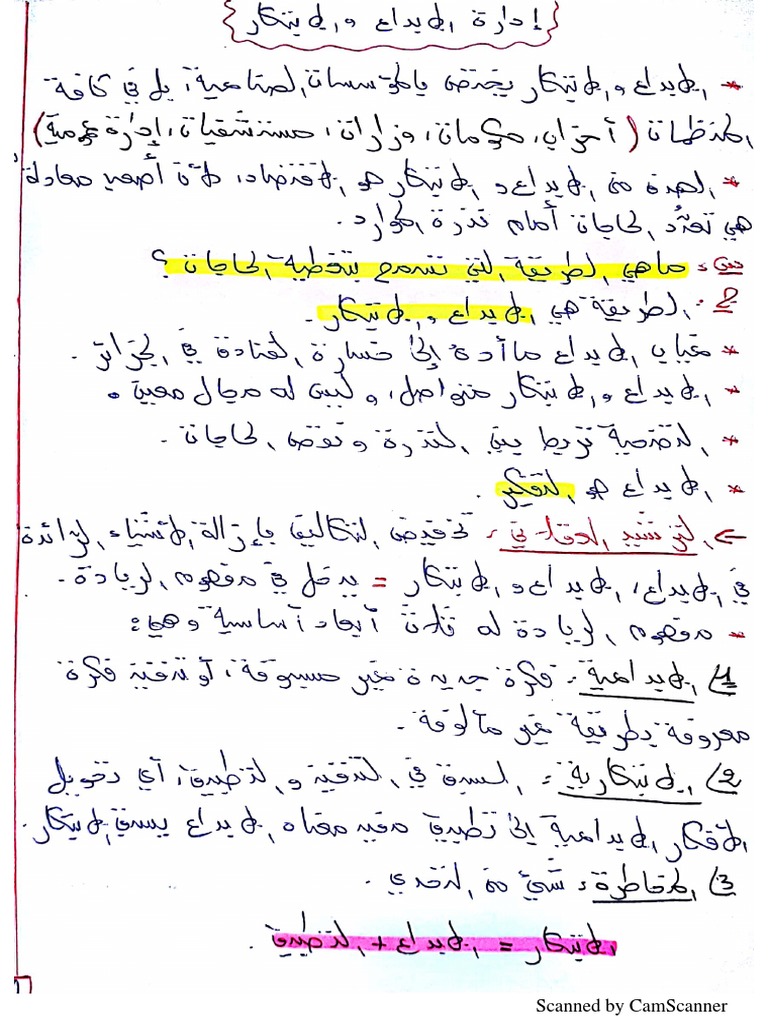 إدارة الإبداع و الابتكار
* الإبداع و الابتكار يختص بالمؤسسات الصناعية، بل في كافة
المنظمات (أحزاب، حكومات، وزارات، مستشفيات، إدارة عمومية)
* الهدف من الإبداع و الابتكار هو الاقتصاد، لأن أصعب معادلة
هي تعدد الحاجات أمام ندرة الموارد.
س: ماهي الطريقة التي تسمح بتغطية الحاجات؟
ج: الطريقة هي الإبداع و الابتكار.
* غياب الإبداع ما أدى إلى خسارة القادة في الجزائر.
* الإبداع و الابتكار متواصل، و ليس له مجال معين.
* التضحية تربط بين الندرة و نقص الحاجات.
* الإبداع هو التفكير.
← الترشيد العقلاني: تخفيض التكاليف بإزالة الأشياء الزائدة
في الإبداع، الإبداع و الابتكار = يدخل في مفهوم الريادة.
* مفهوم الريادة له ثلاث أبعاد أساسية وهي:
1/ الإبداعية: فكرة جديدة غير مسبوقة، أو تنفيذ فكرة
معروفة بطريقة غير مألوفة.
2/ الابتكارية: السبق في التنفيذ و التطبيق، أي تحويل
الأفكار الإبداعية إلى تطبيق مفيد معناه الإبداع يسبق الابتكار.
3/ المخاطرة: شيئ من التحدي.
الابتكار = الإبداع + التطبيق.
Scanned by CamScanner